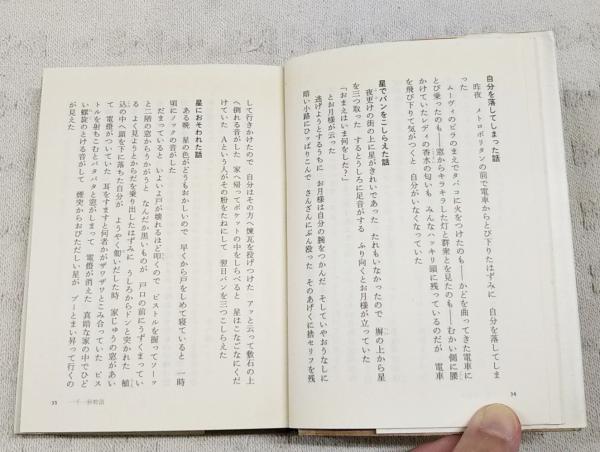 自分を落してしまった話
昨夜　メトロポリタンの前で電車からとび下りたはずみに　自分を落してしま
った
ムーヴィのビラのまえでタバコに火をつけたのも――かどを曲ってきた電車に
とび乗ったのも――窓からキラキラした灯と群衆とを見たのも――むかい側に腰
かけていたレディの香水の匂いも　みんなハッキリ頭に残っているのだが　電車
を飛び下りて気がつくと　自分がいなくなっていた
星でパンをこしらえた話
夜更けの街の上に星がきれいであった　たれもいなかったので　塀の上から星
を三つ取った　するとうしろに足音がする　ふり向くとお月様が立っていた
「おまえはいま何をした？」
とお月様が云った
逃げようとするうちに　お月様は自分の腕をつかんだ　そしていやおうなしに
暗い小路にひっぱりこんで　さんざんにぶん殴った　そのあげくに捨セリフを残
34
して行きかけたので　自分はその方へ煉瓦を投げつけた　アッと云って敷石の上
へ倒れる音がした　家へ帰ってポケットの中をしらべると　星はこなごなにくだ
けていた　Aという人がその粉をたねにして　翌日パンを三つこしらえた
星におそわれた話
ある晩　星の色がどうもおかしいので　早くから戸をしめて寝ていると　一時
頃にノックの音がした
だまっていると　いよいよ戸が壊れるほど叩くので　ピストルを握ってソーッ
と二階の窓からうかがうと　なんだか黒いものが　戸口の前にうずくまってい
る　よく見ようとからだを乗り出したはずみに　うしろからドンと突かれた　植
込の中へ頭を下に落ちた自分が　ようやく匍いだした時　家じゅうの窓があい
て　電燈がついていた　耳をすますと何者かがザワザワとこみ合っていた　ピス
トルを射ちこむとバタバタと窓がしまって　電燈が消えた　真暗な家の中でひど
い螺旋のとける音がして　煙突からおびただしい星が　プーとまい昇って行くの
が見えた
35
一千一秒物語